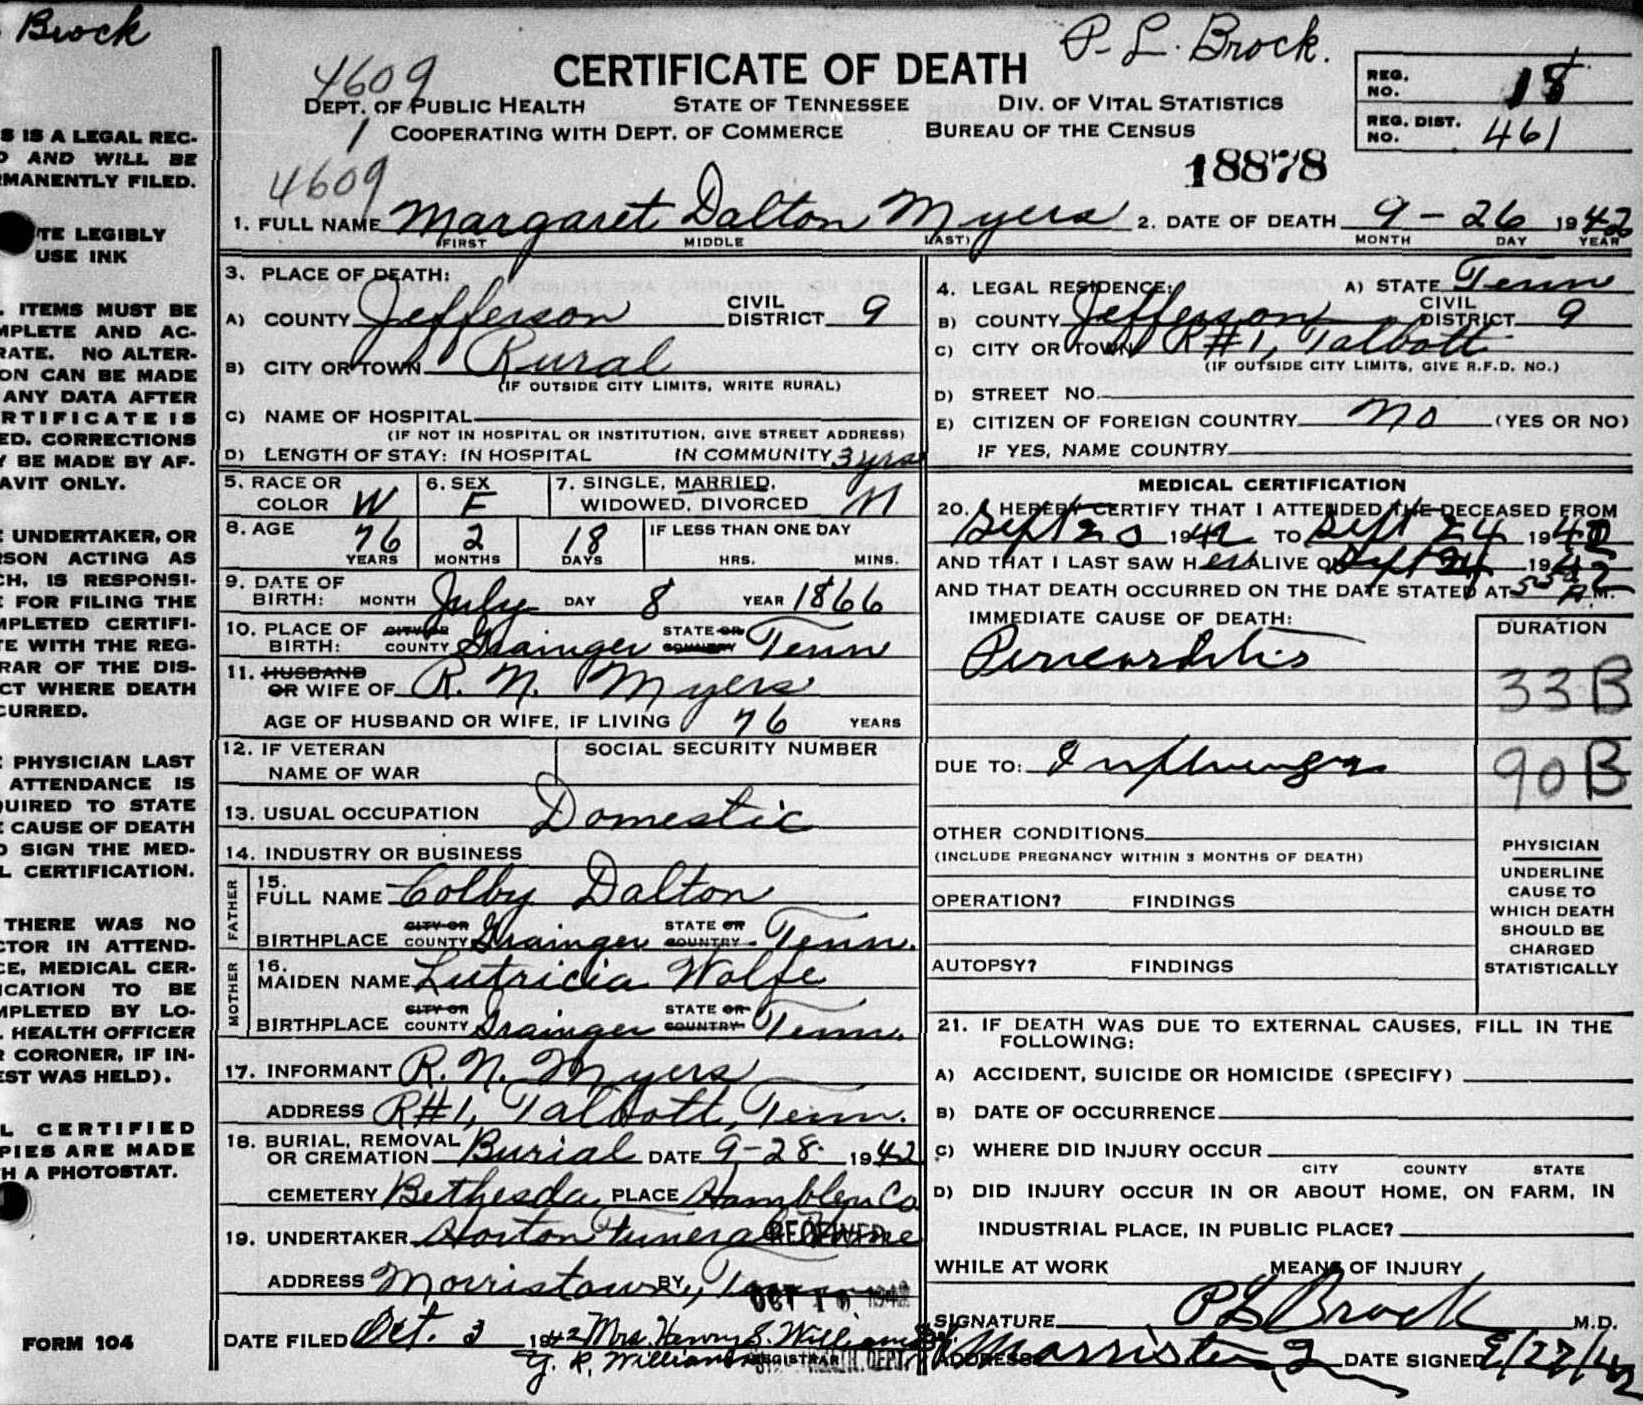 Brock
P. L. Brock.
4609
CERTIFICATE OF DEATH
DEPT. OF PUBLIC HEALTH STATE OF TENNESSEE DIV. OF VITAL STATISTICS
1 COOPERATING WITH DEPT. OF COMMERCE BUREAU OF THE CENSUS
REG. NO. 18
REG. DIST. NO. 461
18878
4609
1. FULL NAME Margaret Dalton Myers 2. DATE OF DEATH 9-26 1942
(FIRST MIDDLE LAST) MONTH DAY YEAR
S IS A LEGAL REC-
D AND WILL BE
RMANENTLY FILED.
TE LEGIBLY
USE INK
. ITEMS MUST BE
MPLETE AND AC-
RATE. NO ALTER-
ON CAN BE MADE
ANY DATA AFTER
ERTIFICATE IS
ED. CORRECTIONS
Y BE MADE BY AF-
AVIT ONLY.
E UNDERTAKER, OR
RSON ACTING AS
CH, IS RESPONSI-
E FOR FILING THE
MPLETED CERTIFI-
TE WITH THE REG-
RAR OF THE DIS-
CT WHERE DEATH
CURRED.
E PHYSICIAN LAST
ATTENDANCE IS
QUIRED TO STATE
E CAUSE OF DEATH
D SIGN THE MED-
L CERTIFICATION.
THERE WAS NO
CTOR IN ATTEND-
CE, MEDICAL CER-
ICATION TO BE
MPLETED BY LO-
. HEALTH OFFICER
R CORONER, IF IN-
EST WAS HELD).
L CERTIFIED
PIES ARE MADE
H A PHOTOSTAT.
FORM 104
3. PLACE OF DEATH:
A) COUNTY Jefferson CIVIL DISTRICT 9
B) CITY OR TOWN Rural
(IF OUTSIDE CITY LIMITS, WRITE RURAL)
C) NAME OF HOSPITAL
(IF NOT IN HOSPITAL OR INSTITUTION, GIVE STREET ADDRESS)
D) LENGTH OF STAY: IN HOSPITAL IN COMMUNITY 3 yrs
5. RACE OR COLOR W 6. SEX F 7. SINGLE, MARRIED, WIDOWED, DIVORCED M
8. AGE 76 YEARS 2 MONTHS 18 DAYS IF LESS THAN ONE DAY HRS. MINS.
9. DATE OF BIRTH: MONTH July DAY 8 YEAR 1866
10. PLACE OF BIRTH: CITY OR COUNTY Grainger STATE OR COUNTRY Tenn
11. HUSBAND OR WIFE OF R. N. Myers
AGE OF HUSBAND OR WIFE, IF LIVING 76 YEARS
12. IF VETERAN NAME OF WAR SOCIAL SECURITY NUMBER
13. USUAL OCCUPATION Domestic
14. INDUSTRY OR BUSINESS
FATHER
15. FULL NAME Colby Dalton
BIRTHPLACE CITY OR COUNTY Grainger STATE OR COUNTRY Tenn.
MOTHER
16. MAIDEN NAME Lutricia Wolfe
BIRTHPLACE CITY OR COUNTY Grainger STATE OR COUNTRY Tenn.
17. INFORMANT R. N. Myers
ADDRESS R#1, Talbott, Tenn.
18. BURIAL, REMOVAL OR CREMATION Burial DATE 9-28- 1942
CEMETERY Bethesda PLACE Hamblen Co
19. UNDERTAKER Horton Funeral Home
RECEIVED
ADDRESS Morristown, Tenn
BY
OCT 1 1942
DATE FILED Oct. 3 1942 Mrs. Henry S. Williams
G. R. Williams REGISTRAR H. DEPT.
4. LEGAL RESIDENCE: A) STATE Tenn
B) COUNTY Jefferson CIVIL DISTRICT 9
C) CITY OR TOWN R#1, Talbott
(IF OUTSIDE CITY LIMITS, GIVE R.F.D. NO.)
D) STREET NO.
E) CITIZEN OF FOREIGN COUNTRY No (YES OR NO)
IF YES, NAME COUNTRY
MEDICAL CERTIFICATION
20. I HEREBY CERTIFY THAT I ATTENDED THE DECEASED FROM
Sept 20 1942 TO Sept 24 1942
AND THAT I LAST SAW HER ALIVE ON Sept 24 1942
AND THAT DEATH OCCURRED ON THE DATE STATED AT A.M.
IMMEDIATE CAUSE OF DEATH: DURATION
Pericarditis
33B
DUE TO: Influenza
90B
OTHER CONDITIONS
(INCLUDE PREGNANCY WITHIN 3 MONTHS OF DEATH)
OPERATION? FINDINGS
AUTOPSY? FINDINGS
PHYSICIAN
UNDERLINE
CAUSE TO
WHICH DEATH
SHOULD BE
CHARGED
STATISTICALLY
21. IF DEATH WAS DUE TO EXTERNAL CAUSES, FILL IN THE
FOLLOWING:
A) ACCIDENT, SUICIDE OR HOMICIDE (SPECIFY)
B) DATE OF OCCURRENCE
C) WHERE DID INJURY OCCUR
CITY COUNTY STATE
D) DID INJURY OCCUR IN OR ABOUT HOME, ON FARM, IN
INDUSTRIAL PLACE, IN PUBLIC PLACE?
WHILE AT WORK MEANS OF INJURY
SIGNATURE P L Brock M.D.
ADDRESS DATE SIGNED 9/27/42